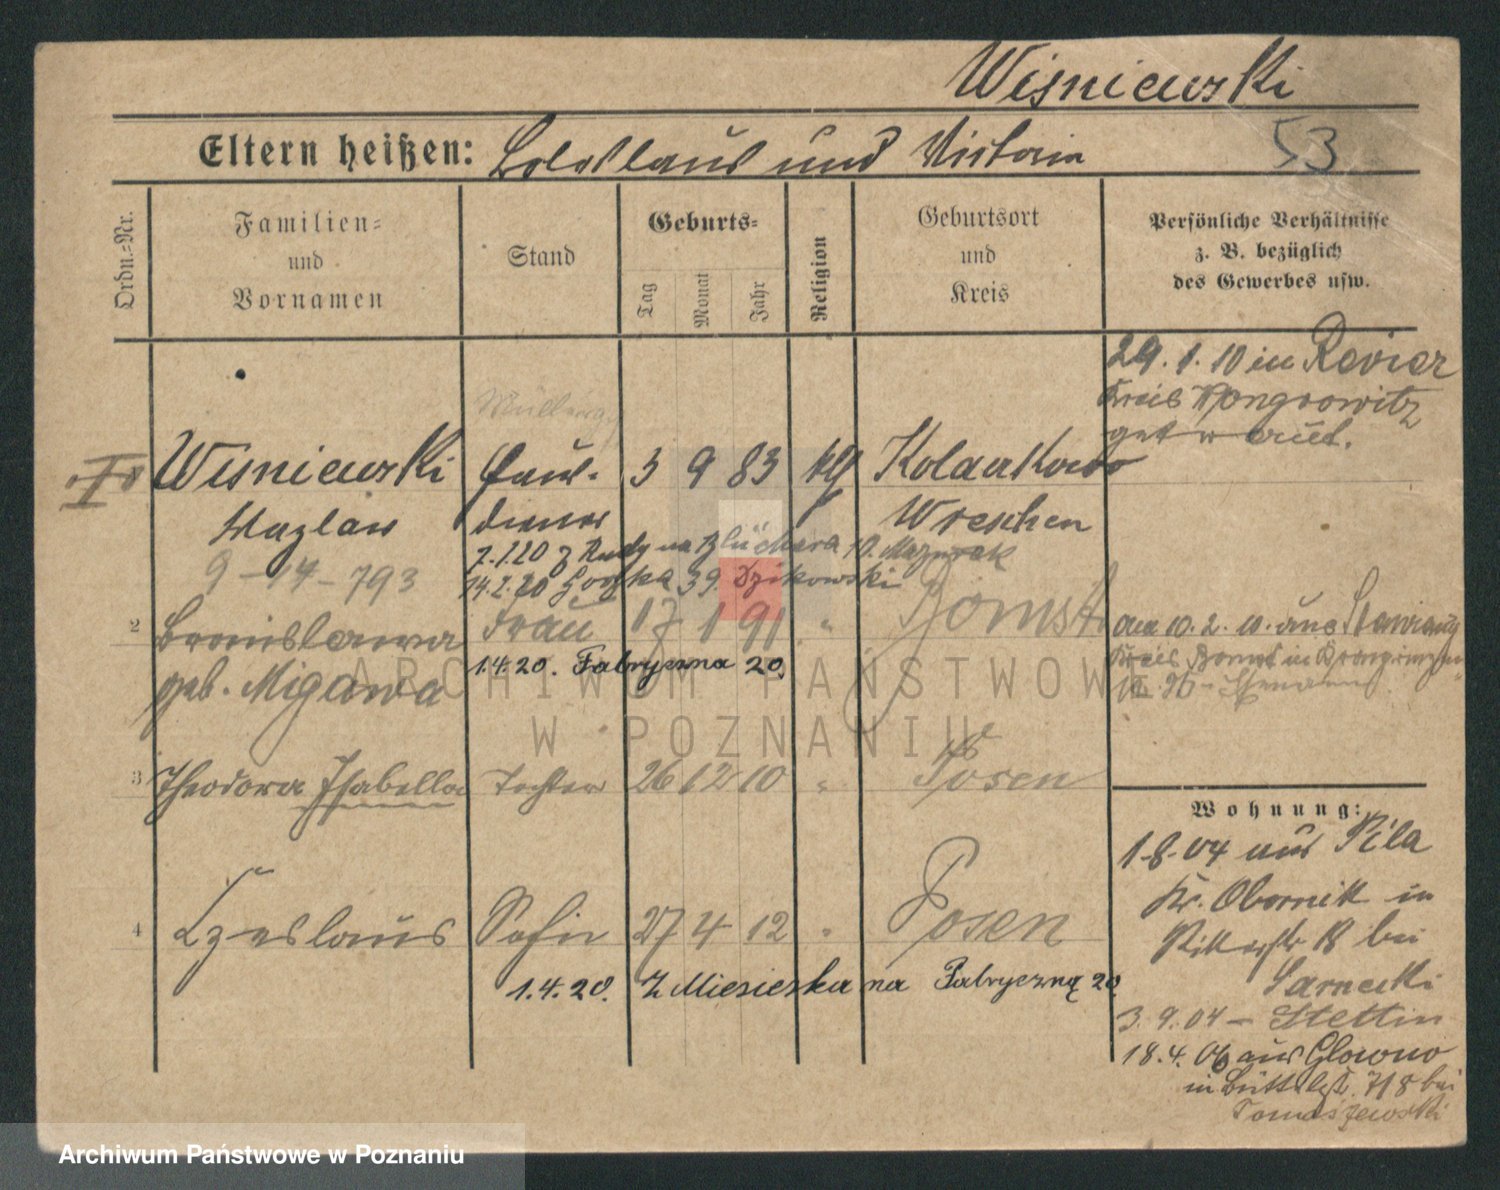 Wisniewski
Eltern heißen: Boleslaus und Victoria 53
Ordn.=Nr.
Familien=
und
Vornamen
Stand
Geburts=
Tag
Monat
Jahr
Religion
Geburtsort
und
Kreis
Persönliche Verhältnisse
z. B. bezüglich
des Gewerbes usw.
29. 1. 10 in Revier
Kreis Wongrowitz
Wisniewski
Haus-
3 9 83
Wazlaw
diener
Wreschen
9-14-793
7.1.20 z Rudy na Blüchera 10. Mazurek
14.2.20 39. Dzikowski
2 Bronislawa
geb. Migawa
Frau 17 1 91 "
Bomst
am 10. 2. 10. aus
Kreis Bomst in
1.4.20. Fabryczna 20.
3 Theodora Isabella Tochter 26 12 10 " Posen
Wohnung:
1-8-04 aus Pila
Kr. Obornik in
Ritterstr 18 bei
Sarnecki
3. 9. 04 – Stettin
18. 4. 06 aus Glowno
in 7/8 bei
Tomaszewski
4 Czeslaus Sohn 27 4 12 " Posen
1.4.20. Z Miesieszka na Fabryczną 20.
ARCHIWUM PAŃSTWOWE
W POZNANIU
Archiwum Państwowe w Poznaniu